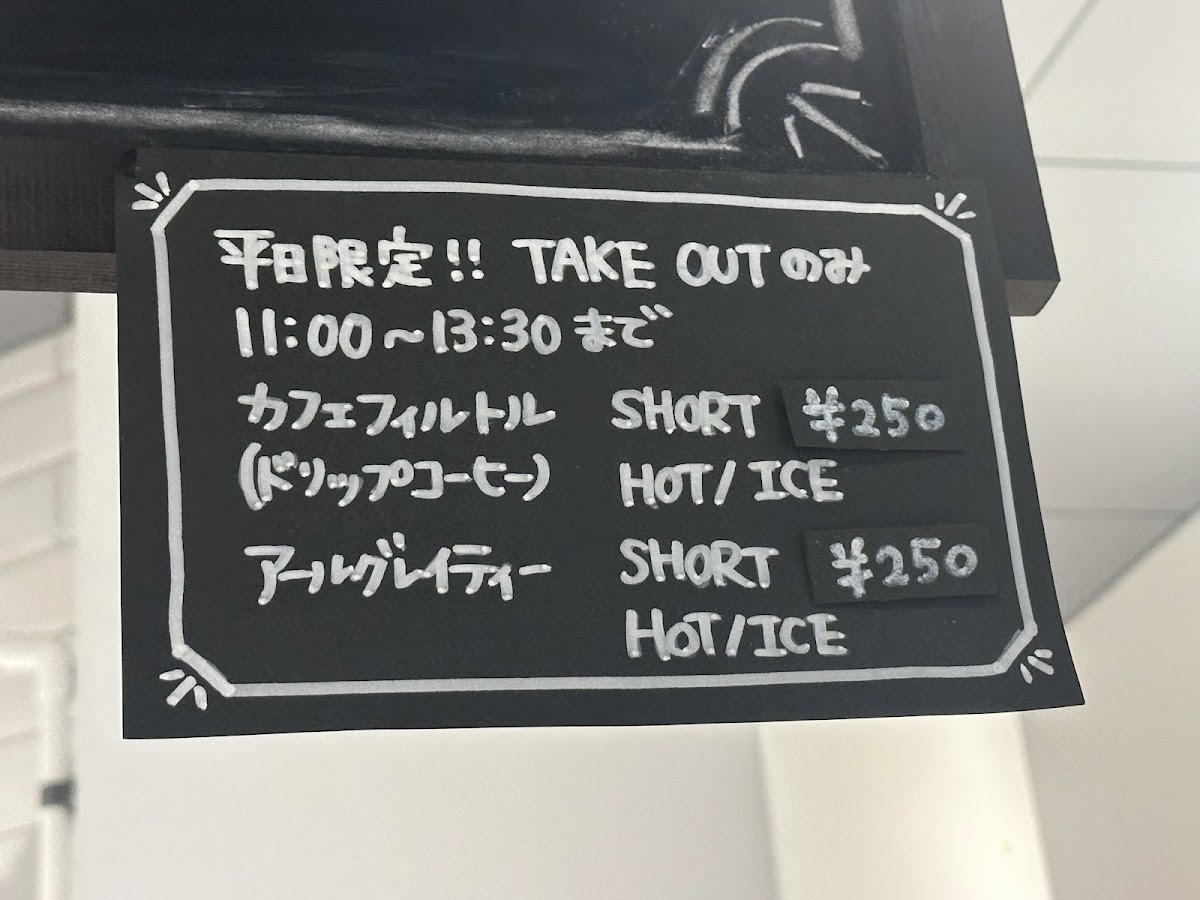 平日限定!! TAKE OUTのみ
11:00〜13:30まで
カフェフィルトル SHORT ¥250
(ドリップコーヒー) HOT/ICE
アールグレイティー SHORT ¥250
HOT/ICE